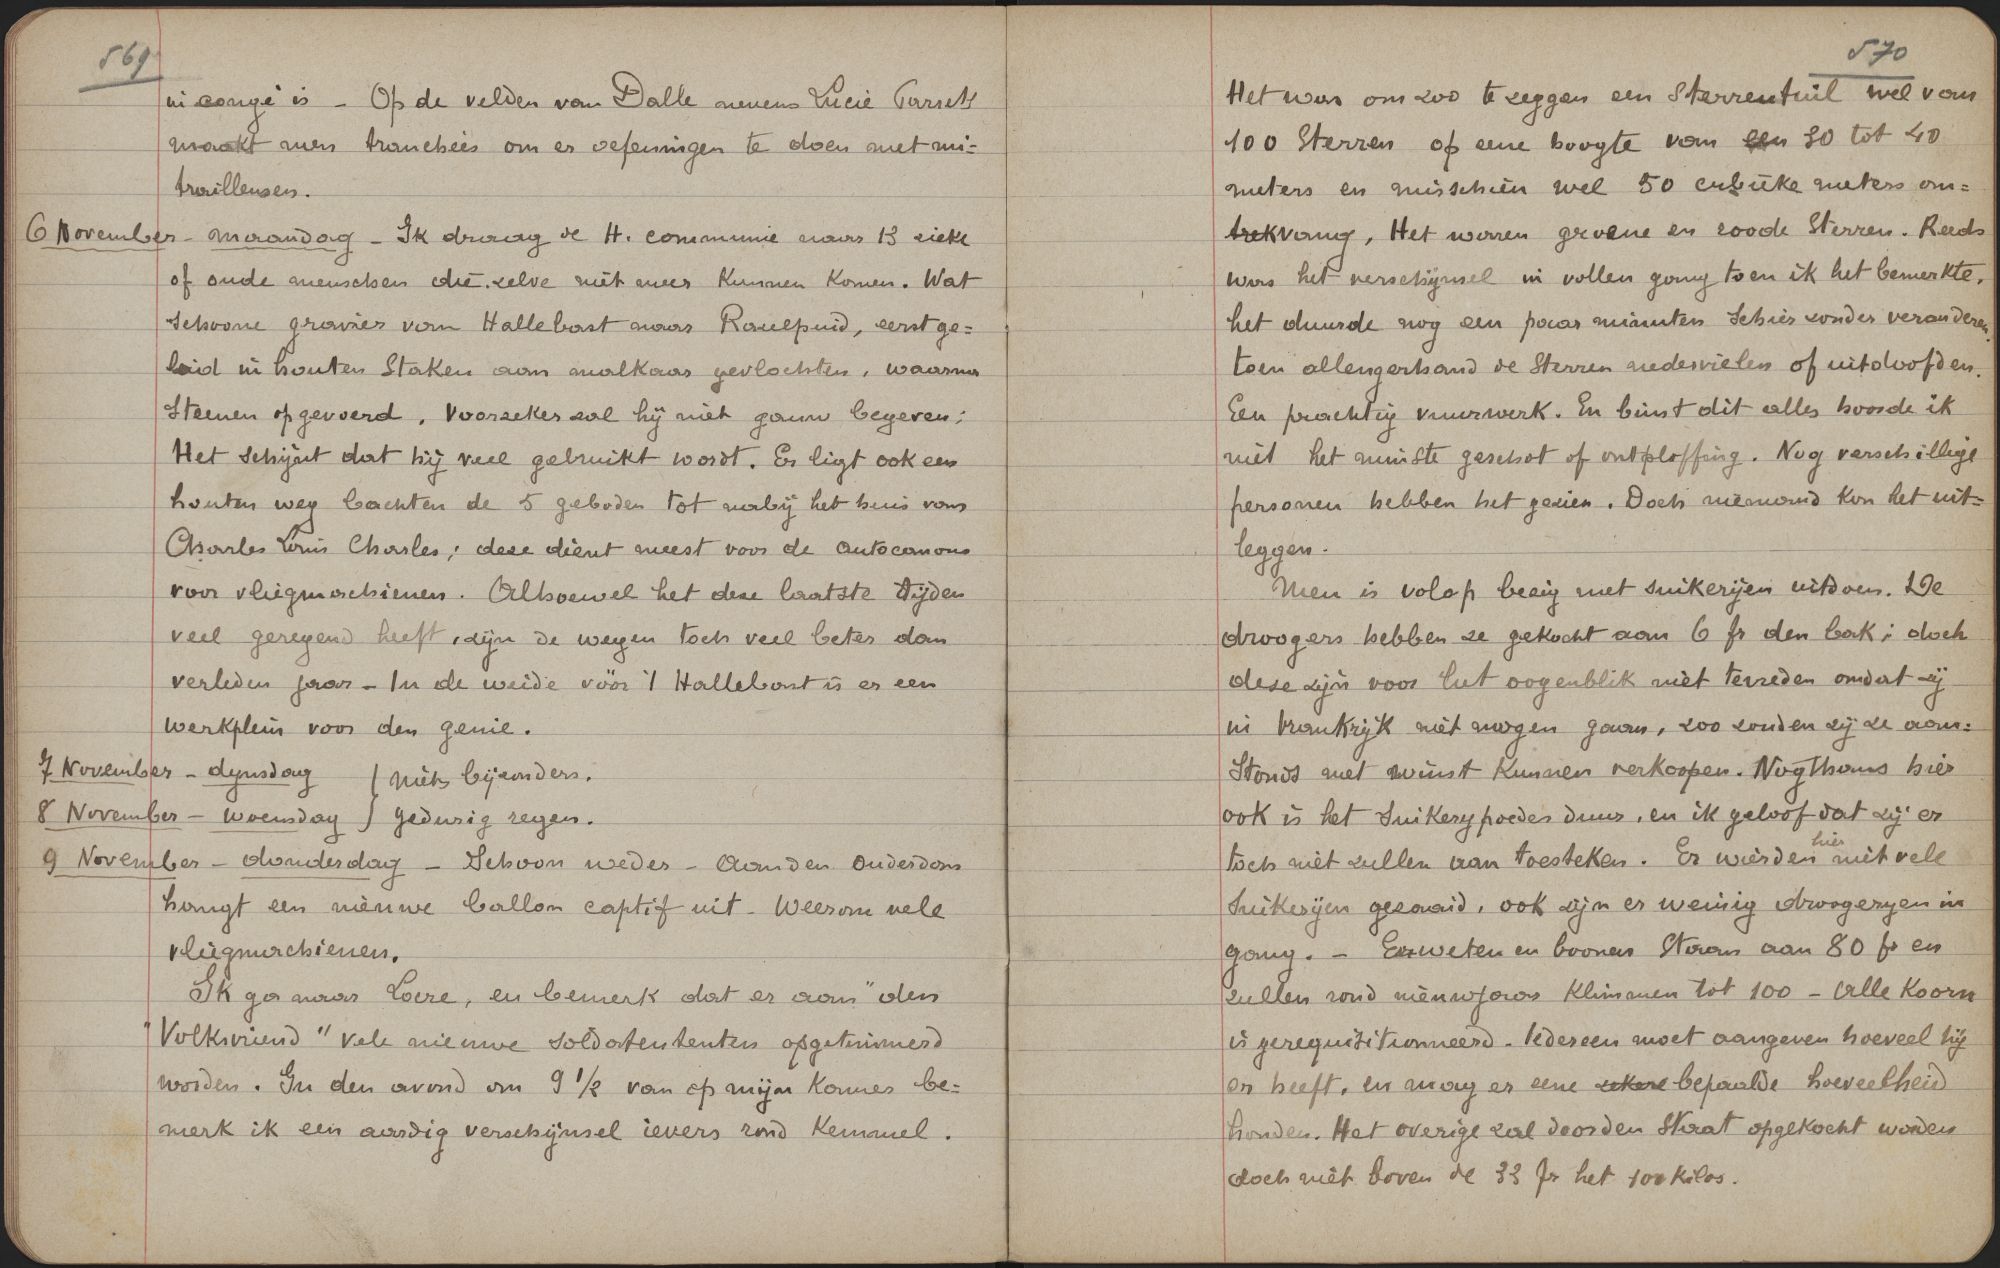 569
in congé is - Op de velden van Dalle nevens Lucie
maakt men tranchées om er oefeningen te doen met mi=
trailleusen.
6 November - maandag - Ik draag de H. communie naar 13 zieke
of oude menschen die zelve niet meer kunnen komen. Wat
schoone gravier van Hallebast naar, eerst ge=
leid in houten staken aan malkaar gevlochten, waarna
steenen opgevoerd. Voorzeker zal hij niet gauw begeven;
Het schijnt dat hij veel gebruikt wordt. Er ligt ook een
houten weg bachten de 5 geboden tot nabij het huis van
Charles Louis Charles; deze dient meest voor de autocanons
voor vliegmachienen. Alhoewel het deze laatste tijden
veel geregend heeft, zijn de wegen toch veel beter dan
verleden jaar - In de weide vóór 't Hallebast is er een
werkplein voor den genie.
7 November - dynsdag } Niets bijzonders.
8 November - woensdag } gedurig regen.
9 November - donderdag - Schoon weder - Aan den Ouderdom
hangt een nieuwe ballon captif uit - Weerom vele
vliegmachienen.
Ik ga naar Locre, en bemerk dat er aan "den
"Volksvriend" vele nieuwe soldatententen opgetimmerd
worden. In den avond om 9 1/2 van op mijn kamer be=
merk ik een aardig verschijnsel ievers rond Kemmel.
570
Het was om zoo te zeggen een sterrentuil wel van
100 Sterren op eene hoogte van een 30 tot 40
meters en misschien wel 50 cubieke meters om=
trekvang, Het waren groene en roode Sterren. Reeds
was het verschijnsel in vollen gang toen ik het bemerkte,
het duurde nog een paar minuten schier zonder veranderen,
toen allengerhand de Sterren nedervielen of uitdoofden.
Een prachtig vuurwerk. En binst dit alles hoorde ik
niet het minste geschot of ontploffing. Nog verschillige
personen hebben het gezien. Doch niemand kon het uit=
leggen.
Men is volop bezig met suikerijen uitdoen. De
droogers hebben ze gekocht aan 6 fr den bak; doch
deze zijn voor het oogenblik niet tevreden omdat zij
in Frankrijk niet mogen gaan, zoo zouden zij ze aan=
Stonds met winst kunnen verkoopen. Nogthans hier
ook is het Suikerypoeder duur, en ik geloof dat zij er
toch niet zullen aan toesteken. Er wierden hier niet vele
Suikerijen gezaaid, ook zijn er weinig droogeryen in
gang. - Erweten en boonen Staan aan 80 fr en
zullen rond nieuwjaar klimmen tot 100 - Alle Koorn
is gerequisitionneerd - Iedereen moet aangeven hoeveel hij
er heeft, en mag er eene zekere bepaalde hoeveelheid
houden. Het overige zal door den Staat opgekocht worden
doch niet boven de 33 fr het 100 Kilos.